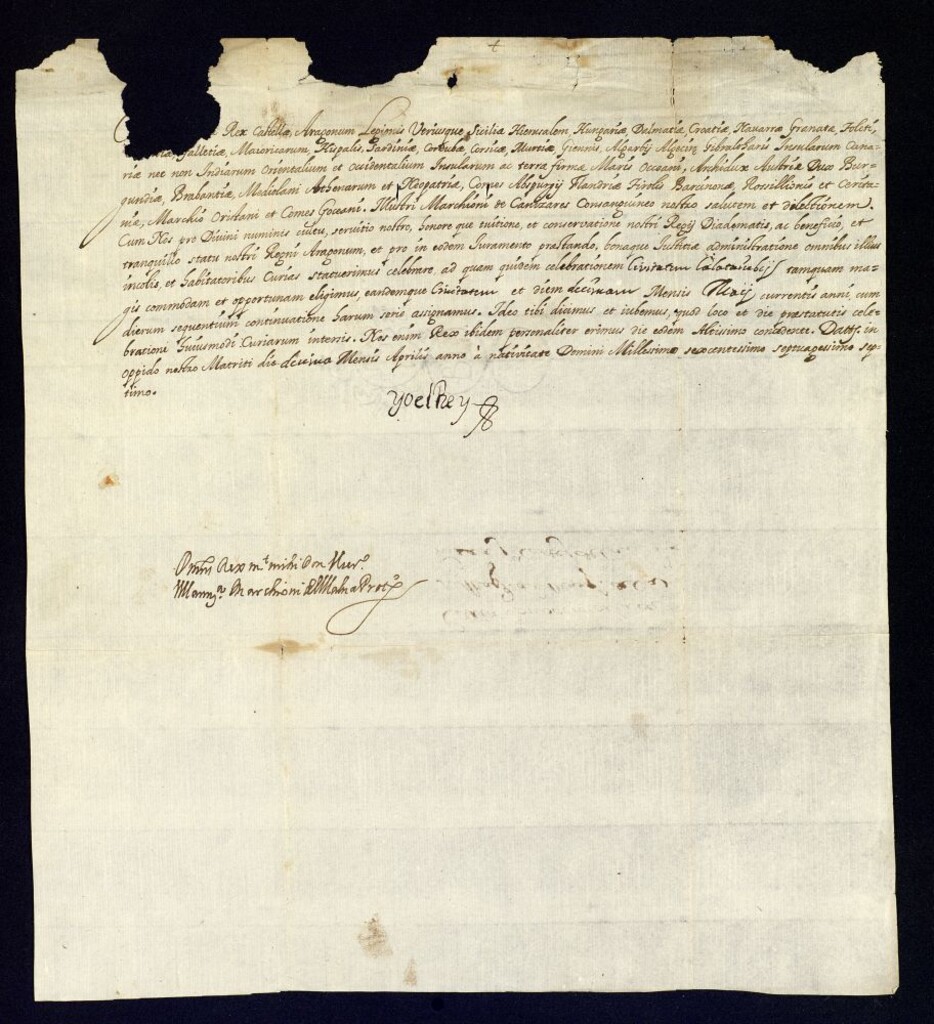 Rex Castellæ, Aragonum Legionis Vtriusque Siciliæ Hierusalem, Hungariæ, Dalmatiæ, Croatiæ, Nauarræ Granatæ, Toleti,
Galletiæ, Maioricarum, Hispalis, Sardiniæ, Cordubæ, Corsicæ, Murtiæ, Giennis, Algarbij Algeciræ Gibraltaris Insularum Cana-
riæ nec non Indiarum Orientalium et Occidentalium Insularum ac terræ firmæ Maris Occeani, Archidux Austriæ Dux Bur-
gundiæ, Brabantiæ, Mediolani Athenarum et Neopatriæ, Comes Abspurgij Flandriæ Tirolis Barcinonæ, Rossillionis et Cerita-
niæ, Marchio Oristani et Comes Goceani. Illustri Marchioni de Cañizares Consanguineo nostro salutem et dilectionem.
Cum Nos pro Diuini numinis cultu, seruitio nostro, honore que tuitione, et conseruatione nostri Regij Diadematis, ac beneficio, et
tranquillo statu nostri Regni Aragonum, et pro in eodem Iuramento præstando, bonaque Iustitiæ administratione omnibus illius
incolis, et habitatoribus Curias statuerimus celebrare, ad quam quidem celebrationem Ciuitatem Calataiubij tamquam ma-
gis commodam et opportunam eligimus, eandemque Ciuitatem et diem decimam Mensis Maij currentis anni, cum
dierum sequentium continuatione harum serie assignamus. Ideo tibi dicimus et iubemus, quod loco et die præstatutis cele-
brationi huiusmodi Curiarum intersis. Nos enim Rex ibidem personaliter erimus die eodem Altissimo concedente. Datt. in
oppido nostro Matriti die decimo Mensis Aprilis anno à natiuitate Domini Millessimo sexcentessimo septuagessimo sep-
timo.
Yo el Rey
Rex mt mihi Don Hier.
Marchioni Prot.